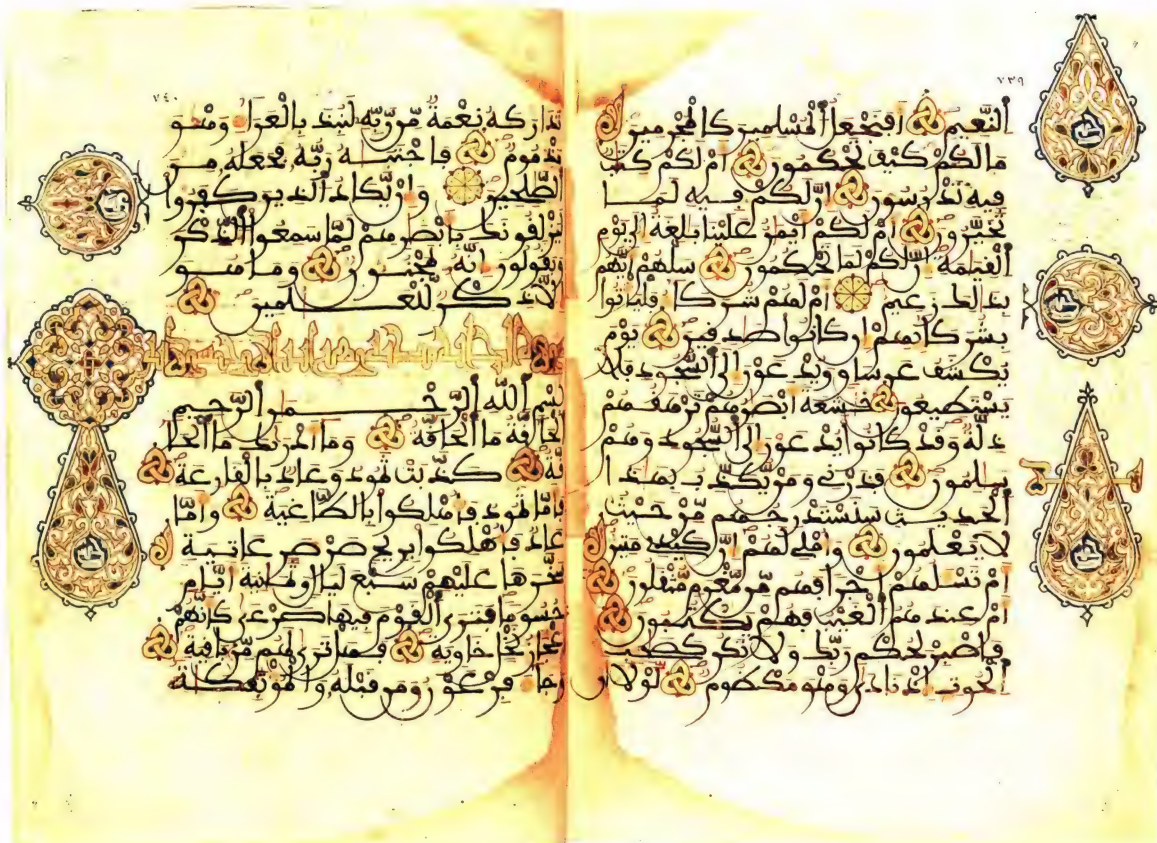 ٧٣٩
النعيم افنجعل المسلمين كالمجرمين
ما لكم كيف تحكمون ام لكم كتب
فيه تدرسون ان لكم فيه لما
تخيرون ام لكم ايمن علينا بلغة الى يوم
القيمة ان لكم لما تحكمون سلهم ايهم
بذلك زعيم ام لهم شركاء فلياتوا
بشركائهم ان كانوا صدقين يوم
يكشف عن ساق ويدعون الى السجود فلا
يستطيعون خشعة ابصرهم ترهقهم
ذلة وقد كانوا يدعون الى السجود وهم
سلمون فذرني ومن يكذب بهذا
الحديث سنستدرجهم من حيث
لا يعلمون واملي لهم ان كيدي متين
ام تسلهم اجرا فهم من مغرم مثقلون
ام عندهم الغيب فهم يكتبون
فاصبر لحكم ربك ولا تكن كصحب
الحوت اذ نادى وهو مكظوم لولا ان
٧٤٠
تدركه نعمة من ربه لنبذ بالعراء وهو
مذموم فاجتبه ربه فجعله من
الصلحين وان يكاد الذين كفروا
ليزلقونك بابصرهم لما سمعوا الذكر
ويقولون انه لمجنون وما هو
الا ذكر للعلمين
بسم الله الرحمن الرحيم
الحاقة ما الحاقة وما ادريك ما الحا
قة كذبت ثمود وعاد بالقارعة
فاما ثمود فاهلكوا بالطاغية واما
عاد فاهلكوا بريح صرصر عاتية
سخرها عليهم سبع ليال وثمنية ايام
حسوما فترى القوم فيها صرعى كانهم
اعجاز نخل خاوية فهل ترى لهم من باقية
وجاء فرعون ومن قبله والموتفكة